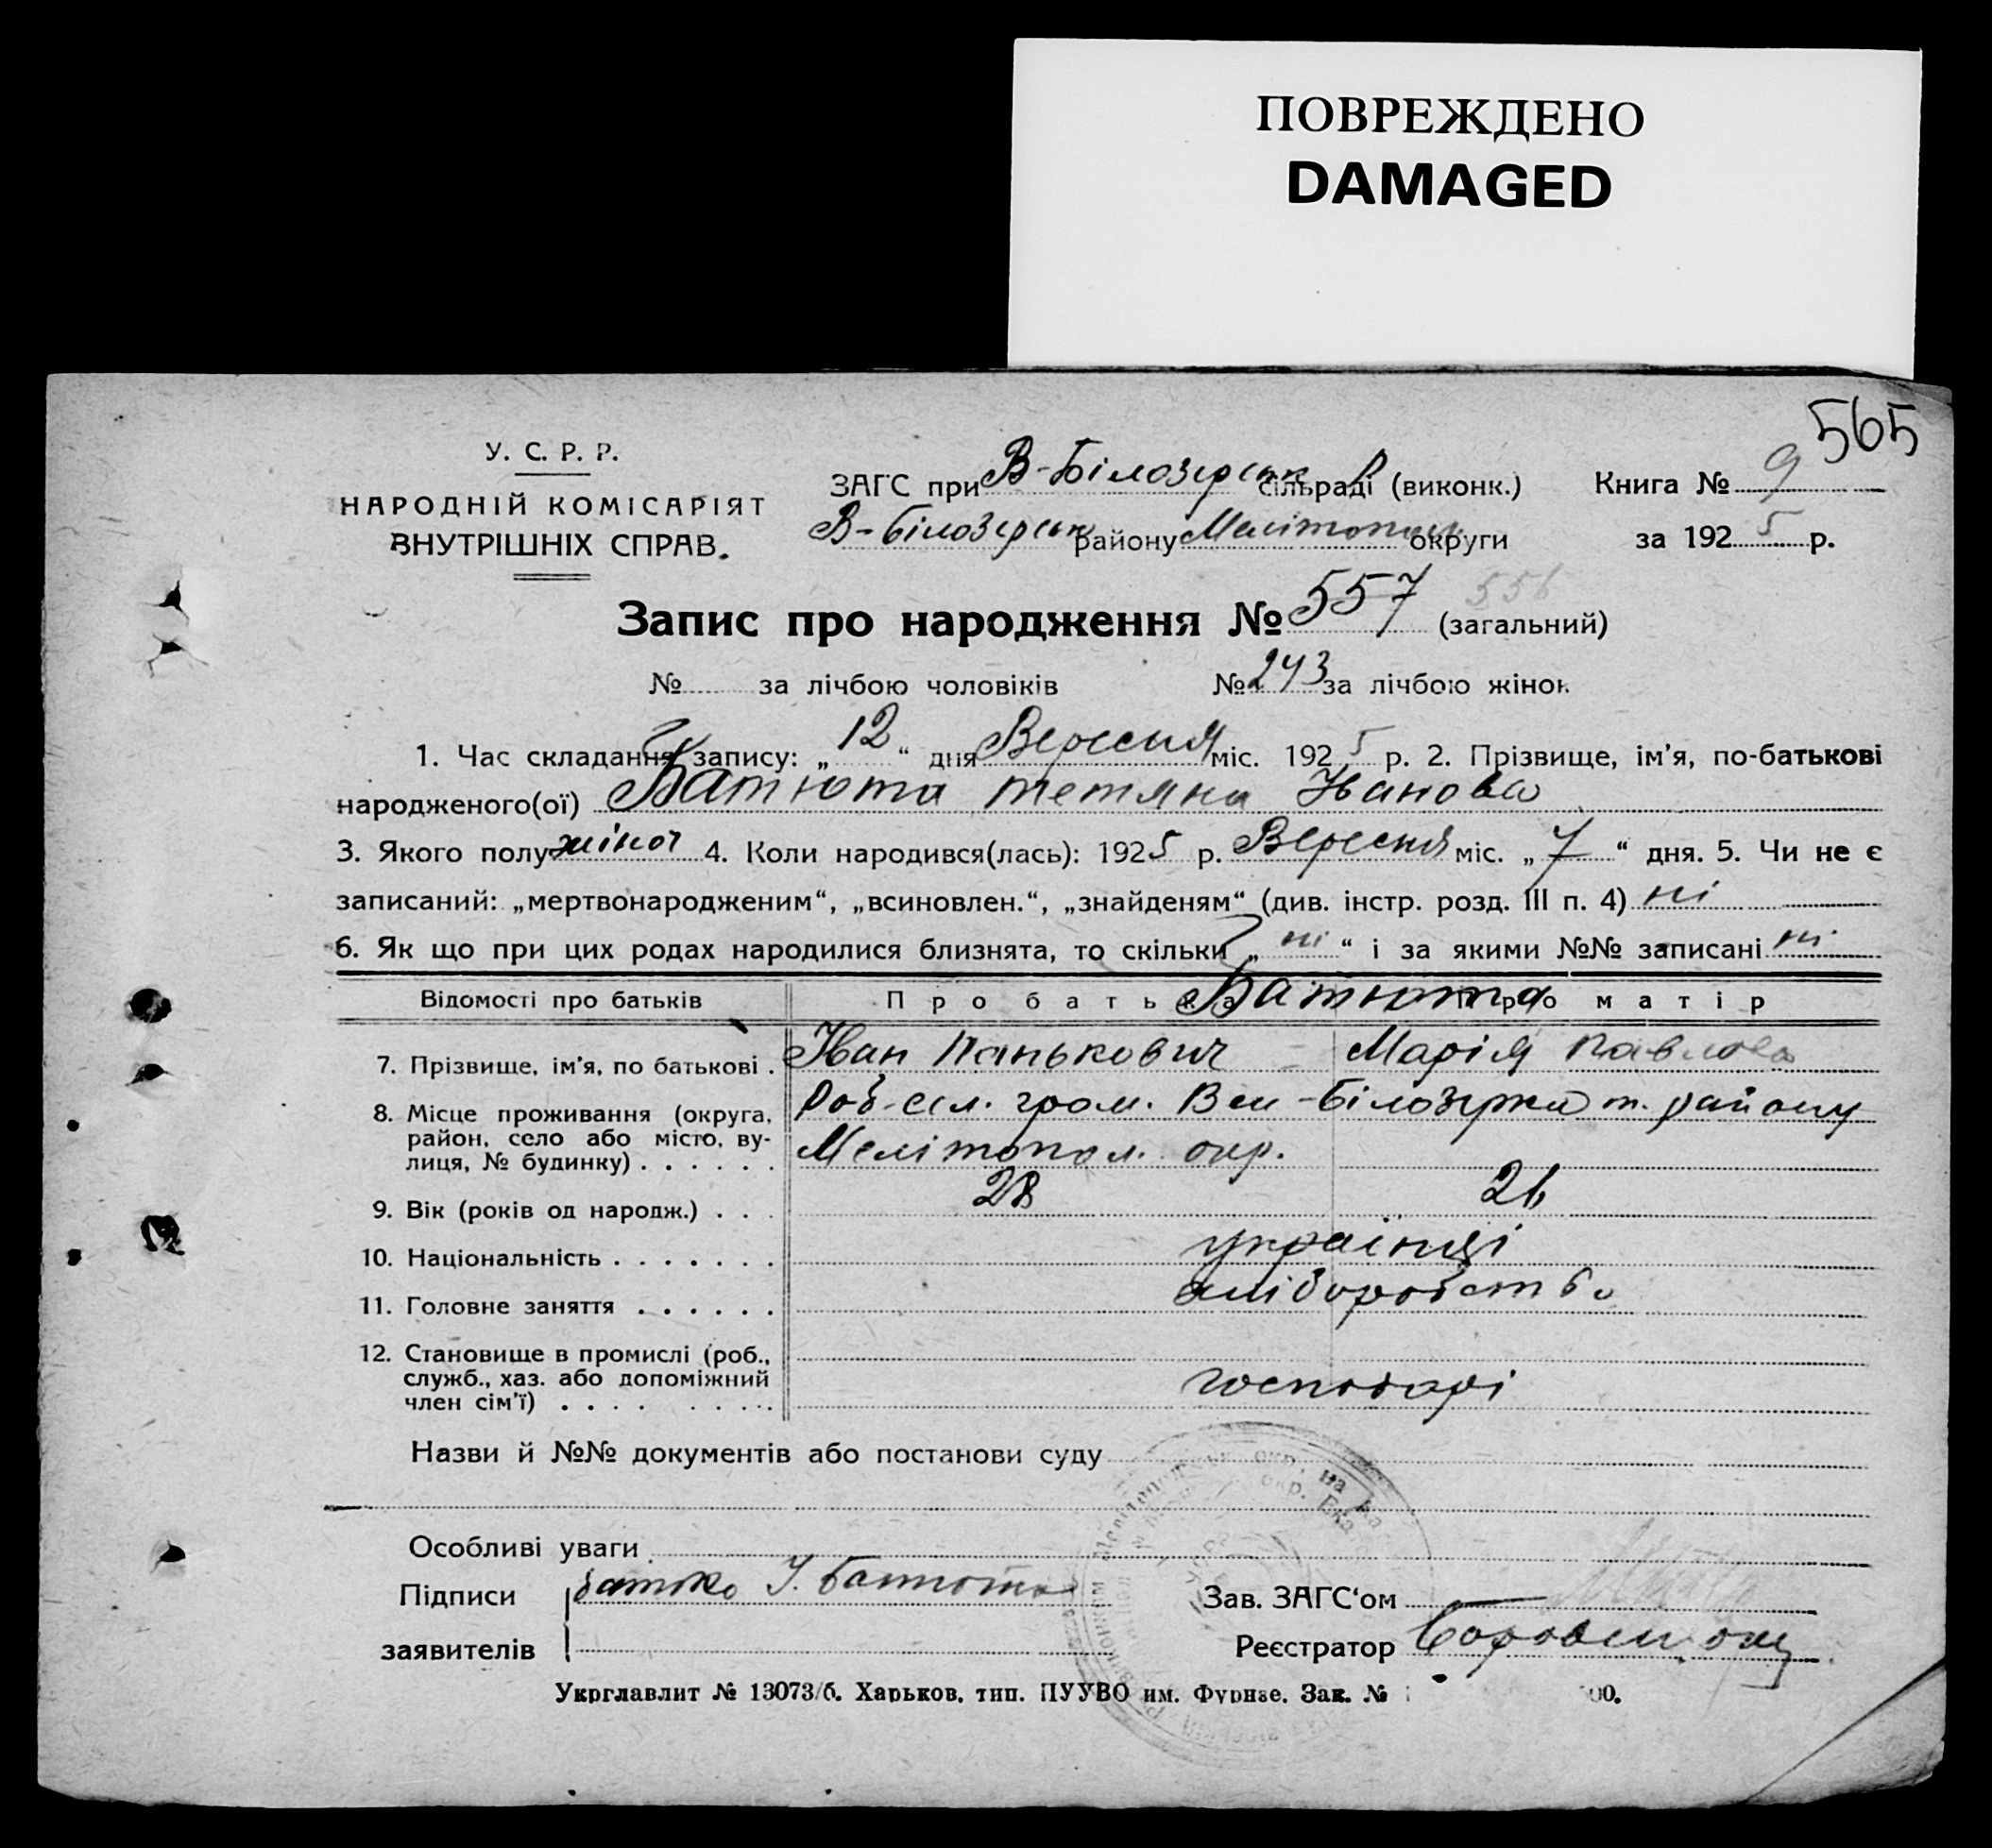 ПОВРЕЖДЕНО
DAMAGED
565
У. С. Р. Р.
НАРОДНІЙ КОМІСАРІЯТ
ВНУТРІШНІХ СПРАВ.
ЗАГС при В-Білозерськ сільраді (виконк.) Книга № 9
В-Білозерськ району Мелітополь округи за 1925 р.
Запис про народження № 557 (загальний) 556
№ за лічбою чоловіків № 243 за лічбою жінок
1. Час складання запису: „12“ дня Вересня міс. 1925 р. 2. Прізвище, ім’я, по-батькові
народженого(ої) Батюта Тетяна Іванова
3. Якого полу жіноч 4. Коли народився(лась): 1925 р. Вересня міс. „7“ дня. 5. Чи не є
записаний: „мертвонародженим“, „всиновлен.“, „знайденям“ (див. інстр. розд. III п. 4) ні
6. Як що при цих родах народилися близнята, то скільки „ні“ і за якими №№ записані ні
Відомості про батьків Про батька Батюта Про матір
7. Прізвище, ім’я, по батькові . Іван Панькович Марія Павлова
8. Місце проживання (округа, район, село або місто, вулиця, № будинку) . . . . . . Роб-сел. гром. Вел-Білозерка т. району
Мелітопол. окр.
9. Вік (років од народж.) . . . 28 26
10. Національність . . . . . . . українці
11. Головне заняття . . . . . . хліборобство
12. Становище в промислі (роб., служб., хаз. або допоміжний член сім’ї) . . . . . . . . господарі
Назви й №№ документів або постанови суду
Особливі уваги
Підписи батько І. Батюта Зав. ЗАГС‘ом
заявителів Реєстратор
Укрглавлит № 13073/б. Харьков. тип. ПУУВО им. Фрунзе. Зак. № 00.